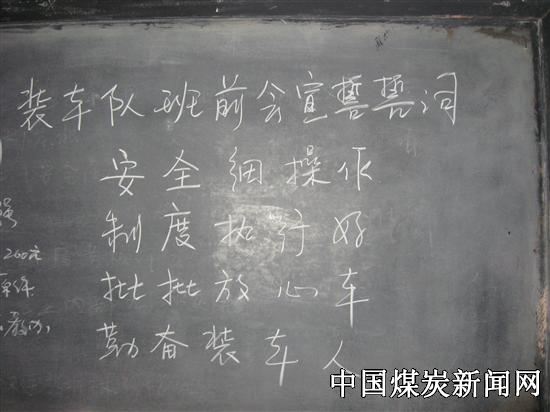 装车队班前会宣誓誓词
安全细操作
制度执行好
批批放心车
勤奋装车人
260元
中国煤炭新闻网